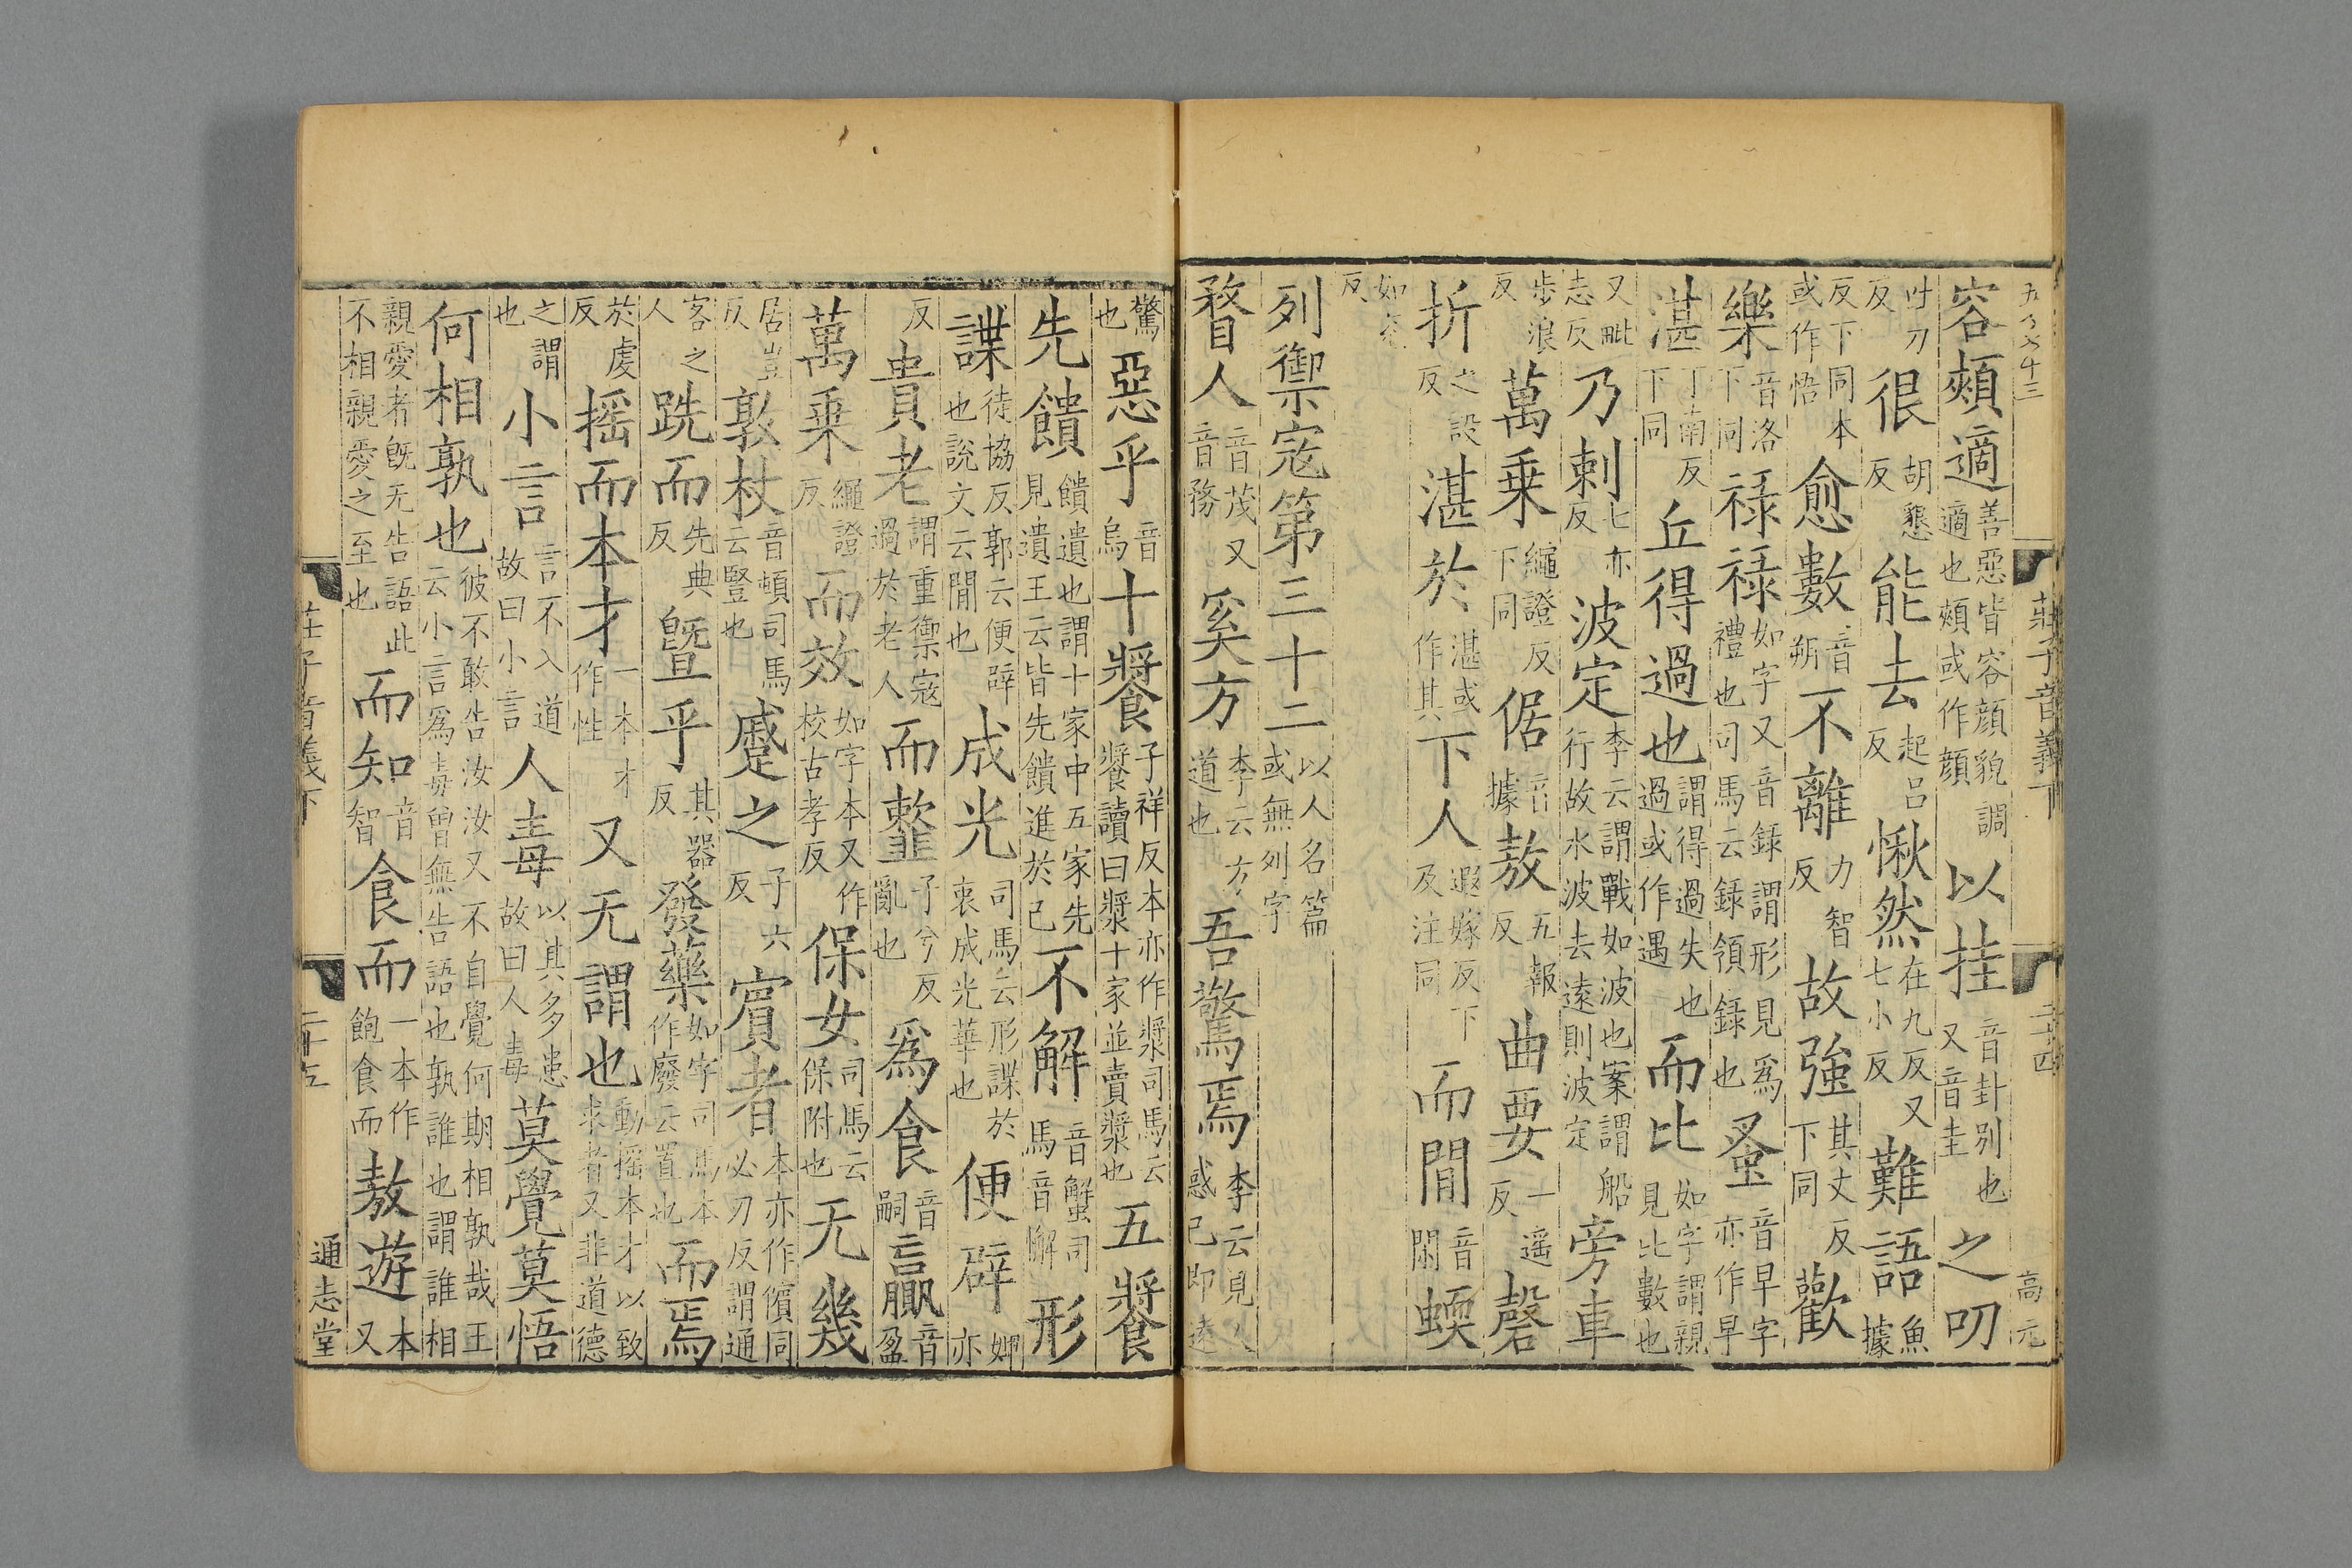 莊子音義下 二十四 高元
容頰適善惡皆容顏貌調適也頰或作顏以挂音卦別也又音圭之叨
吐刀反很胡懇反能去起呂反愀然在九反又七小反難語魚據
反下同本或作悟愈數音朔不離力智反故強其丈反下同歡
樂音洛下同祿祿如字又音錄謂形見爲禮也司馬云錄領錄也蚤音早字亦作早
湛丁南反下同丘得過也謂得過失也過或作遇而比如字謂親見比數也
又毗志反乃刺七亦反波定李云謂戰如波也案謂船行故水波去遠則波定旁車
步浪反萬乘繩證反下同倨音據敖五報反曲要一遙反磬
折之設反湛於湛或作其下人遐嫁反下及注同而閒音閑蝡
反
列禦寇第三十二以人名篇或無列字
瞀人音茂又音務奚方李云方道也吾驚焉李云見人感己即遠
驚也惡乎音烏十𩞉子祥反本亦作漿司馬云𩞉讀曰漿十家並賣漿也五𩞉
先饋饋遺也謂十家中五家先見遺王云皆先饋進於己不解音蟹司馬音懈形
諜徒協反郭云便辟也說文云閒也成光司馬云形諜於衷成光華也便辟婢亦
反貴老謂重禦寇過於老人而𩐎子兮反亂也爲食音嗣贏音盈
萬乘繩證反而效如字本又作校古孝反保女司馬云保附也无幾
居豈反敦杖音頓司馬云豎也蹙之子六反賓者本亦作儐同必刃反謂通
客之人跣而先典反曁乎其器反發藥如字司馬本作廢云置也而焉
於虔反搖而本才一本才作性又无謂也動搖本才以致求者又非道德
之謂也小言言不入道故曰小言人毒以其多患故曰人毒莫覺莫悟
何相孰也彼不敢告汝汝又不自覺何期相孰哉王云小言爲毒曾無告語也孰誰也謂誰相
親愛者旣无告語此不相親愛之至也而知音智食而一本作飽食而敖遊本又
莊子音義下 二十五 通志堂